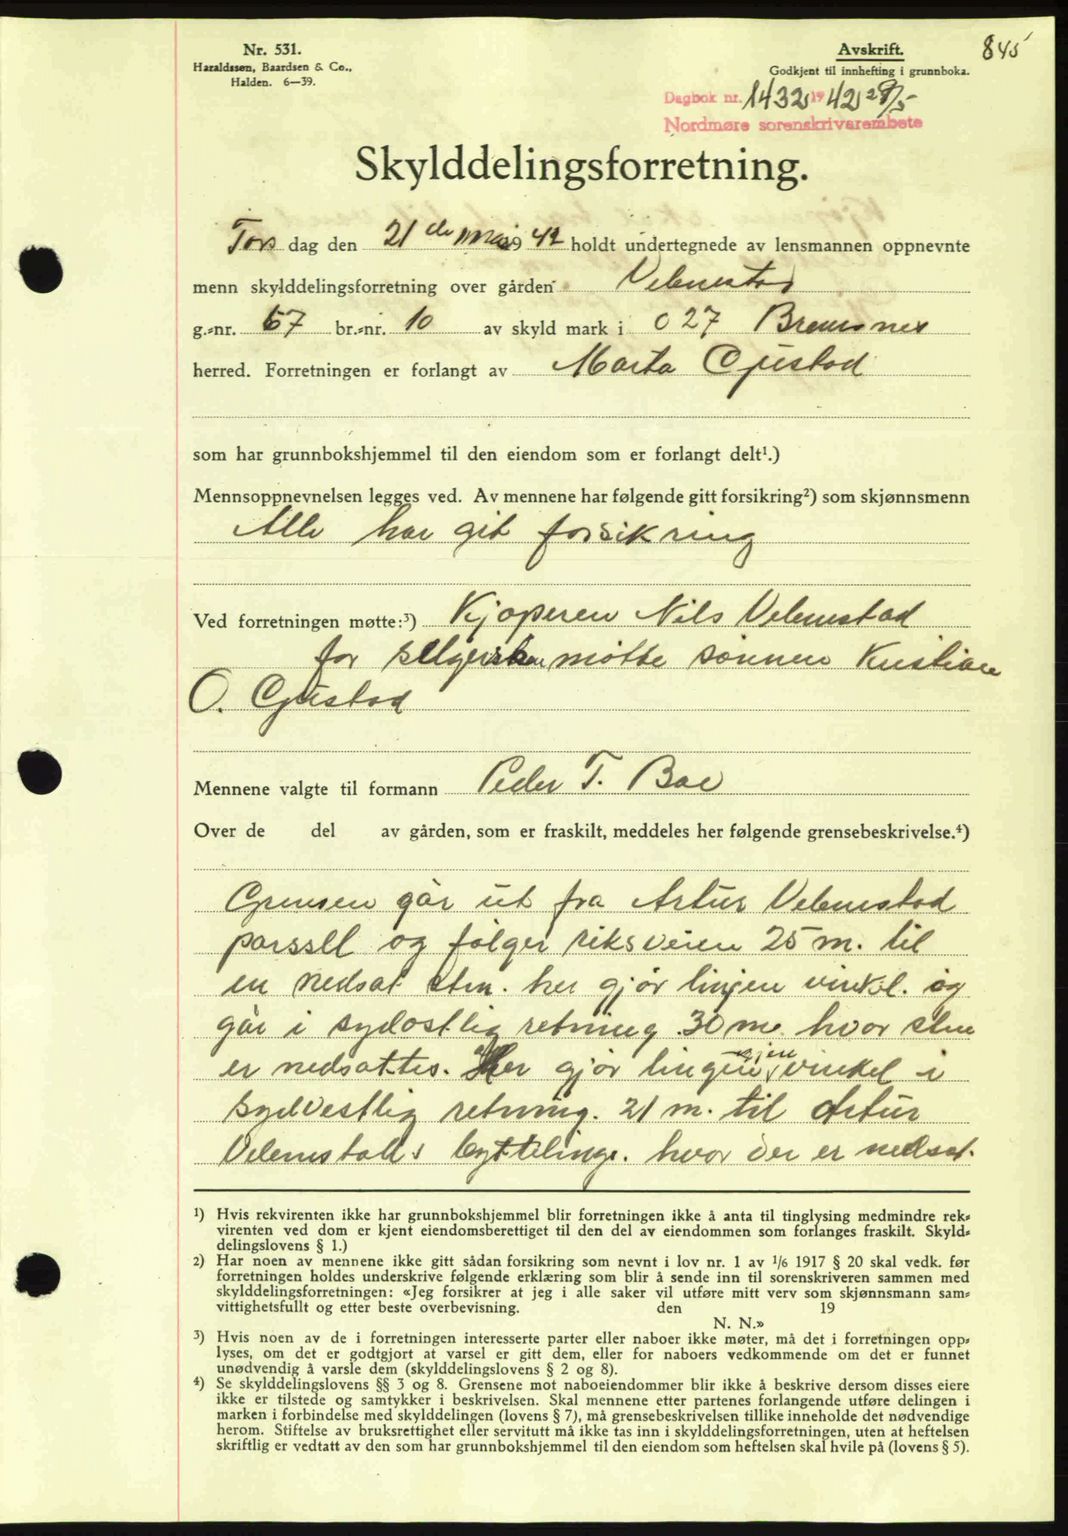 Nr. 531.
Haraldssen, Baardsen & Co.,
Halden. 6—39.
Avskrift.
Godkjent til innhefting i grunnboka.
845
Dagbok nr. 1432 1942 28/5
Nordmøre sorenskrivarembete
Skylddelingsforretning.
Tors dag den 21de mai 19 42 holdt undertegnede av lensmannen oppnevnte
menn skylddelingsforretning over gården Velernstad
g.=nr. 67 br.=nr. 10 av skyld mark i 0 27 Bremsnes
herred. Forretningen er forlangt av Marta Gjustad
som har grunnbokshjemmel til den eiendom som er forlangt delt¹.)
Mennsoppnevnelsen legges ved. Av mennene har følgende gitt forsikring²) som skjønnsmenn
Alle har git forsikring
Ved forretningen møtte:³) Kjøperen Nils Velernstad
for selgersken møtte sønnen Kristian
O. Gjustad
Mennene valgte til formann Peder T. Boe
Over de del av gården, som er fraskilt, meddeles her følgende grensebeskrivelse.⁴)
Grensen går ut fra Artur Velernstad
parsell og følger riksveien 25 m. til
en nedsat sten. her gjør linjen vinkel. og
går i sydøstlig retning 30 m. hvor sten
er nedsattes. Her gjør lingen igjen vinkel i
sydvestlig retning. 21 m. til Artur
Velernstads byttelinge. hvor der er nedsat.
¹) Hvis rekvirenten ikke har grunnbokshjemmel blir forretningen ikke å anta til tinglysing medmindre rek=
virenten ved dom er kjent eiendomsberettiget til den del av eiendommen som forlanges fraskilt. Skyld=
delingslovens § 1.)
²) Har noen av mennene ikke gitt sådan forsikring som nevnt i lov nr. 1 av 1/6 1917 § 20 skal vedk. før
forretningen holdes underskrive følgende erklæring som blir å sende inn til sorenskriveren sammen med
skylddelingsforretningen: «Jeg forsikrer at jeg i alle saker vil utføre mitt verv som skjønnsmann sam=
vittighetsfullt og etter beste overbevisning. den 19
N. N.»
³) Hvis noen av de i forretningen interesserte parter eller naboer ikke møter, må det i forretningen opp=
lyses, om det er godtgjort at varsel er gitt dem, eller for naboers vedkommende om det er funnet
unødvendig å varsle dem (skylddelingslovens § 2 og 8).
⁴) Se skylddelingslovens §§ 3 og 8. Grensene mot naboeiendommer blir ikke å beskrive dersom disses eiere
ikke er tilstede og samtykker i beskrivelsen. Skal mennene etter partenes forlangende utføre delingen i
marken i forbindelse med skylddelingen (lovens § 7), må grensebeskrivelsen tillike inneholde det nødvendige
herom. Stiftelse av bruksrettighet eller servitutt må ikke tas inn i skylddelingsforretningen, uten at heftelsen
skriftlig er vedtatt av den som har grunnbokshjemmel til den eiendom som heftelsen skal hvile på (lovens § 5).